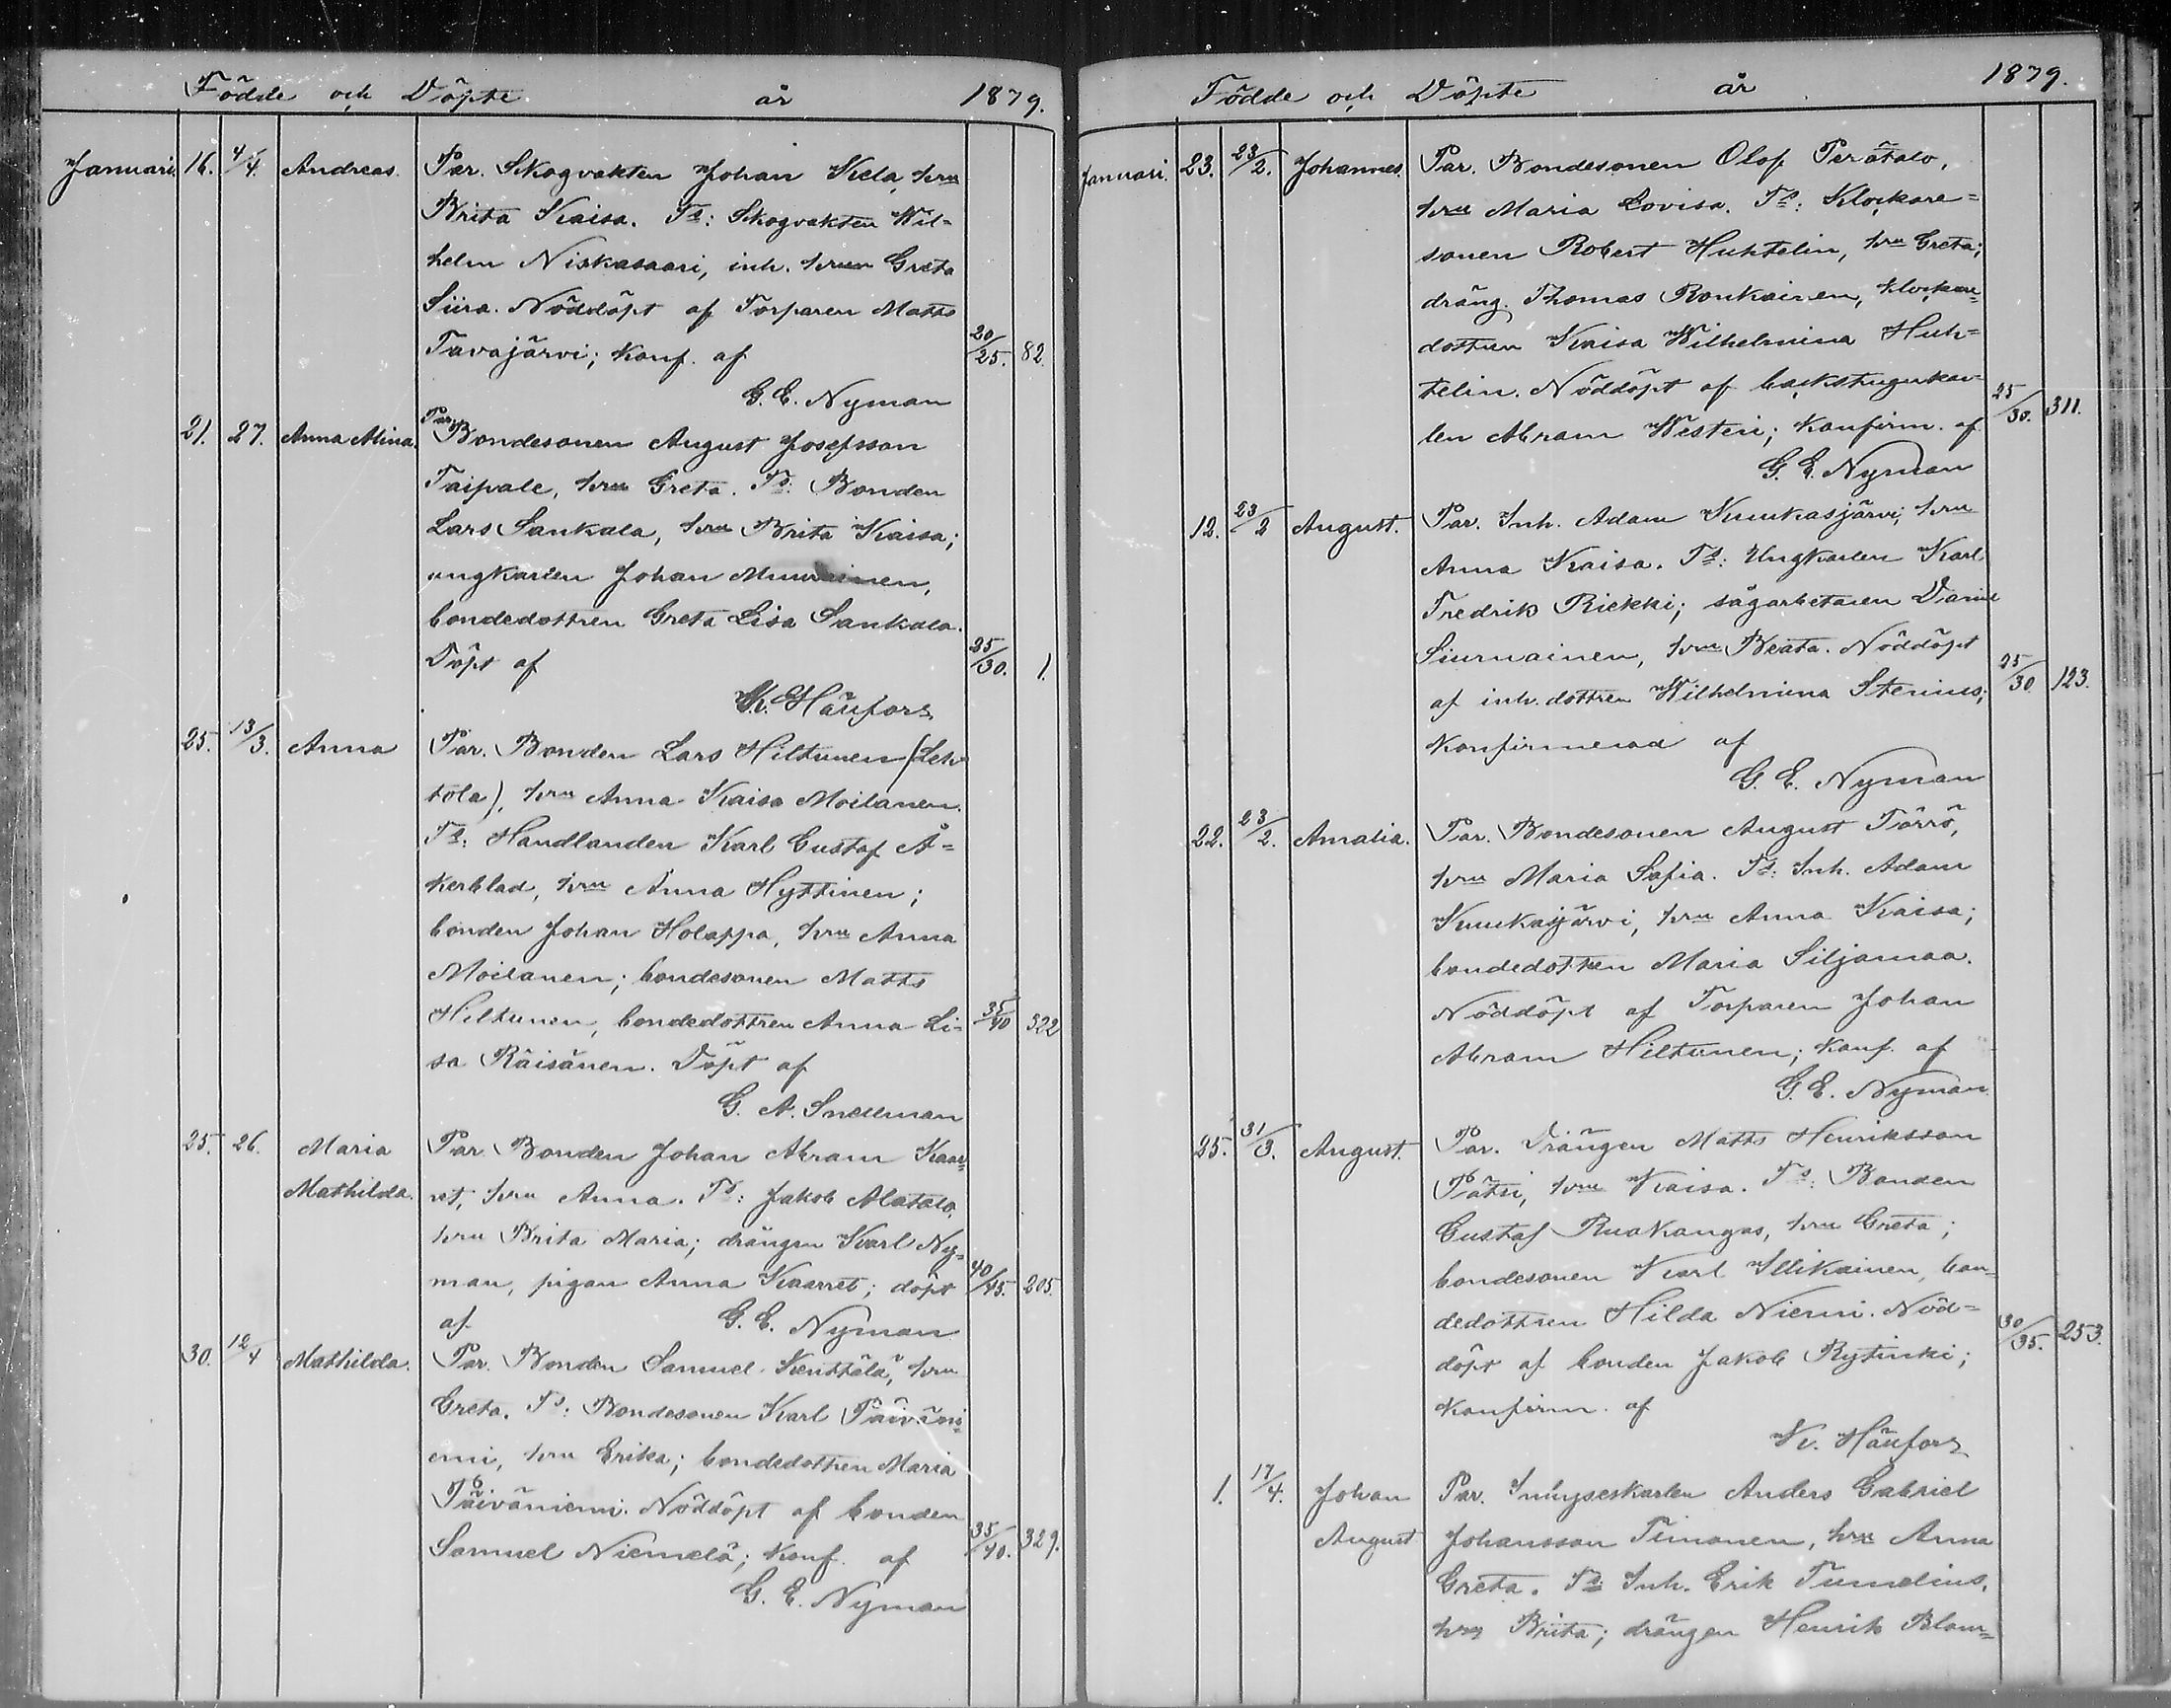 Födde och Döpte år 1879.
Januari. 16. 4/4. Andreas. Par. Skogvakten Johan Kela, hru
Brita Kaisa. Ts: Skogvakten Wil-
helm Niskasaari, inh. hrun Greta
Siira. Nöddöpt af Torparen Matts
Tavajärvi; konf. af 20/25. 82.
G. E. Nyman
21. 27. Anna Alina. Par. Bondesonen August Josefsson
Taipale, hru Greta. Ts: Bonden
Lars Sankala, hru Brita Kaisa;
ungkarlen Johan
bondedottren Greta Lisa Sankala.
Döpt af 25/30. 1.
K. Häufors
25. 13/3. Anna Par. Bonden Lars Hiltunen (Leh-
tola), hru Anna Kaisa Moilanen.
Ts: Handlanden Karl Gustaf Å=
kerblad, hru Anna Hyttinen;
bonden Johan Holappa, hru Anna
Moilanen; bondesonen Matts
Hiltunen, bondedottren Anna Li- 35/40 322
sa Räisänen. Döpt af
G. A. Snellman
25. 26. Maria Par. Bonden Johan Abram Kaar=
Mathilda. ret, hru Anna. Ts: Jakob Alatalo,
hru Brita Maria; drängen Karl Ny=
man, pigan Anna Kaarret; döpt 40/45. 205.
af G. E. Nyman
30. 12/4 Mathilda. Par. Bonden Samuel Kenttälä, hru
Greta. Ts: Bondesonen Karl Päiväni=
emi, hru Erika; bondedottren Maria
Päiväniemi. Nöddöpt af bonden
Samuel Niemelä; konf. af 35/40. 329.
G. E. Nyman
Födde och Döpte år 1879.
Januari. 23. 23/2. Johannes. Par. Bondesonen Olof Perätalo,
hru Maria Lovisa. Ts: Klockare=
sonen Robert Huhtelin, hru Greta;
dräng. Thomas Ronkainen, klockare=
dottren Kaisa Wilhelmina Huh=
telin. Nöddöpt af backstugukar-
len Abram Westeri; konfirm. af 25/30. 311.
G. E. Nyman
12. 23/2 August. Par. Inh. Adam Kuukasjärvi, hru
Anna Kaisa. Ts: Ungkarlen Karl
Fredrik Riekki; sågarbetaren Daniel
Siurnainen, hru Beata. Nöddöpt
af inh. dottren Wilhelmina Stenius; 25/30 123.
konfirmerad af
G. E. Nyman
22. 23/2. Amalia. Par. Bondesonen August Törrö,
hru Maria Sofia. Ts: Inh. Adam
Kuukasjärvi, hru Anna Kaisa;
bondedottren Maria Siljamaa.
Nöddöpt af Torparen Johan
Abram Hiltunen; konf. af
G. E. Nyman
25. 31/3. August. Par. Drängen Matts Henriksson
Pätsi, hru Kaisa. Ts: Bonden
Gustaf Ruokangas, hru Greta;
bondesonen Karl Illikainen, bon=
dedottren Hilda Niemi. Nöd=
döpt af bonden Jakob Rytinki; 30/35. 253.
konfirm. af
K. Häufors
1. 17/4. Johan Par. Inhyseskarlen Anders Gabriel
August Johansson Timonen, hru Anna
Greta. Ts Inh. Erik Tumelius,
hru Brita; drängen Henrik Blom=